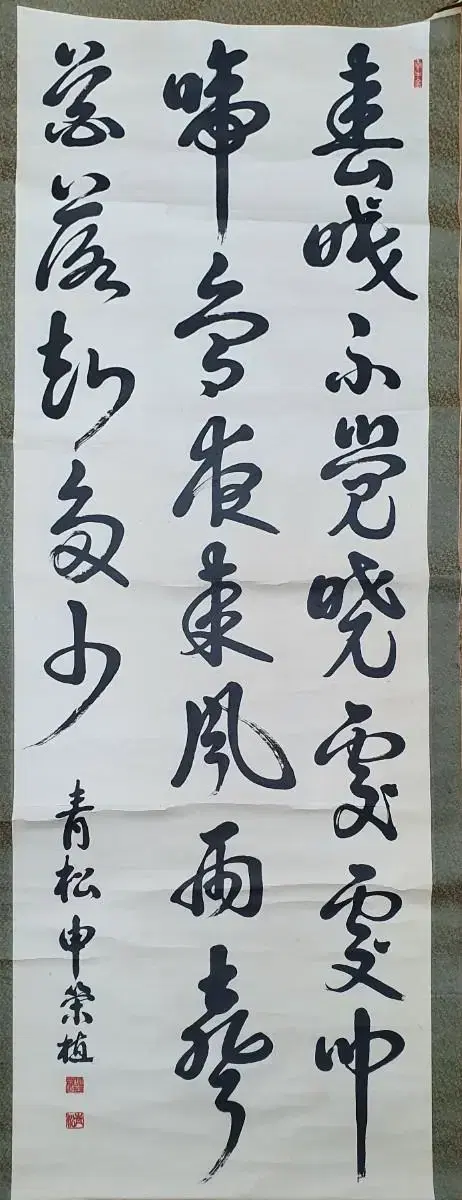 春眠不覺曉處處聞
啼鳥夜來風雨聲
花落知多少
青松申榮植